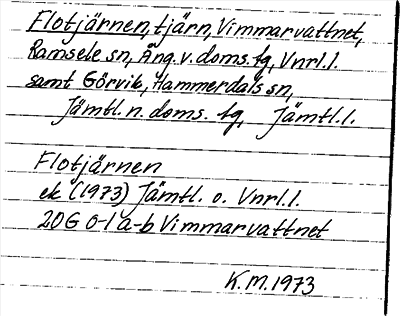 Flotjärnen, tjärn, Vimmarvattnet,
Ramsele sn, Ång.v.doms.fg, Vnrl.l.
samt Görvik, Hammerdals sn,
Jämtl.n.doms.fg, Jämtl.l.
Flotjärnen
ek (1973) Jämtl. o. Vnrl.l.
20G 0-1 a-b Vimmarvattnet
K.M.1973